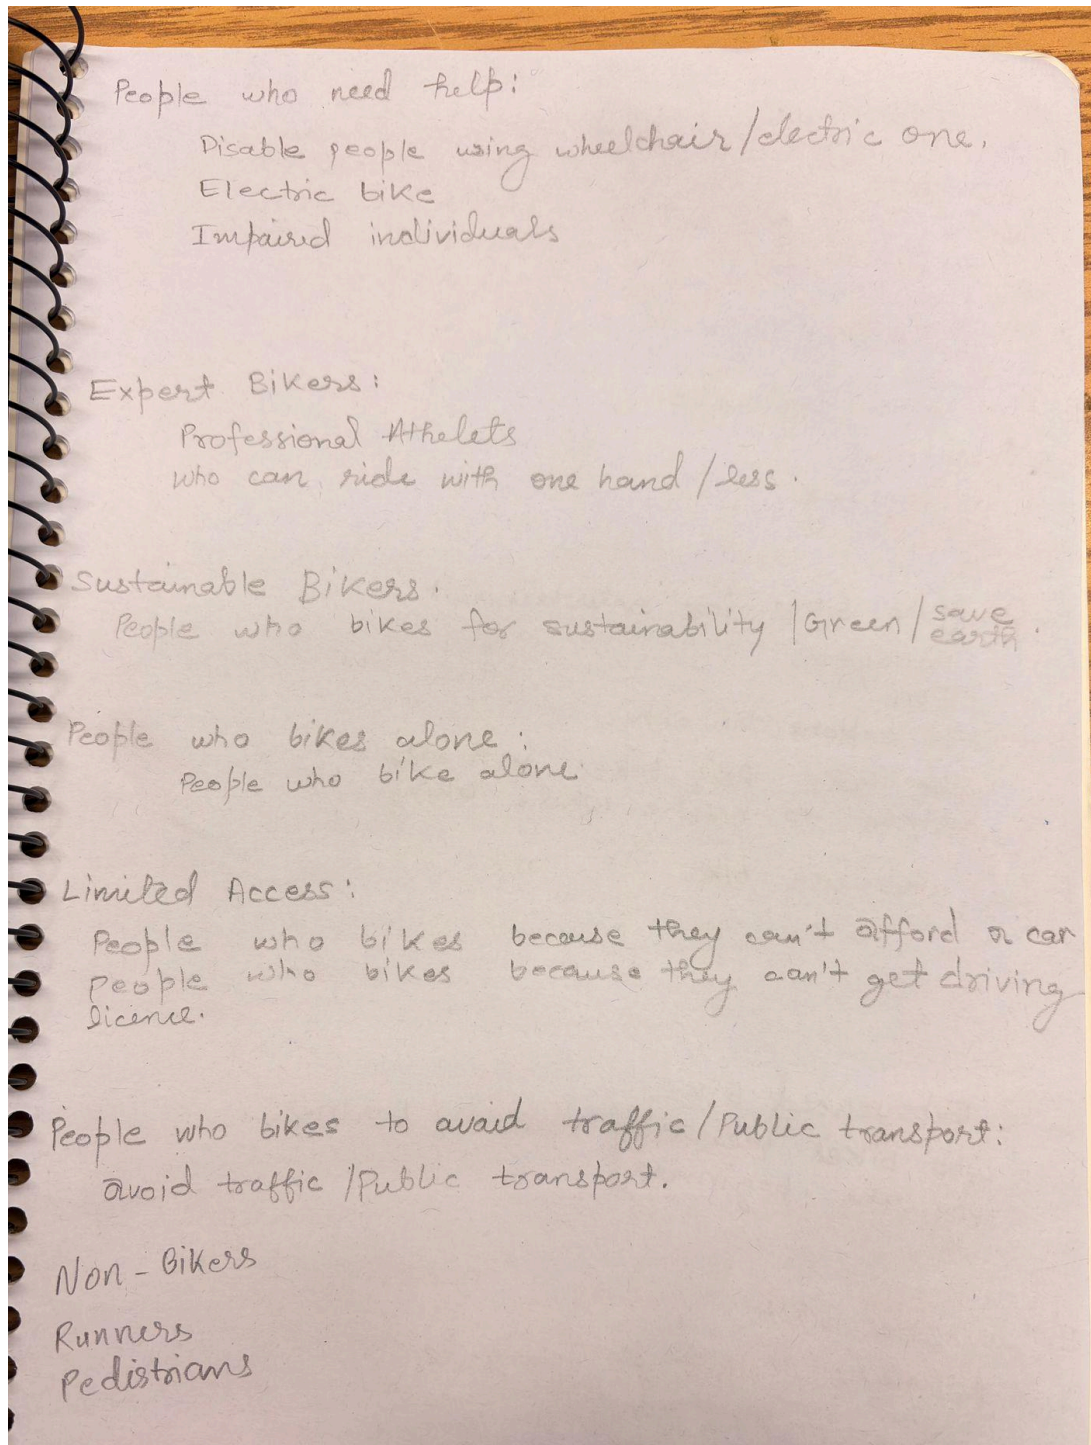 People who need help:
Disable people using wheelchair/electric one.
Electric bike
Impaired individuals
Expert Bikers:
Professional Athelets
who can ride with one hand/less.
Sustainable Bikers.
People who bikes for sustainability /Green/ save earth.
People who bikes alone:
People who bike alone
Limited Access:
People who bikes because they can't afford a car
people who bikes because they can't get driving
licence.
People who bikes to avoid traffic/Public transport:
avoid traffic /Public transport.
Non-Bikers
Runners
Pedistrians